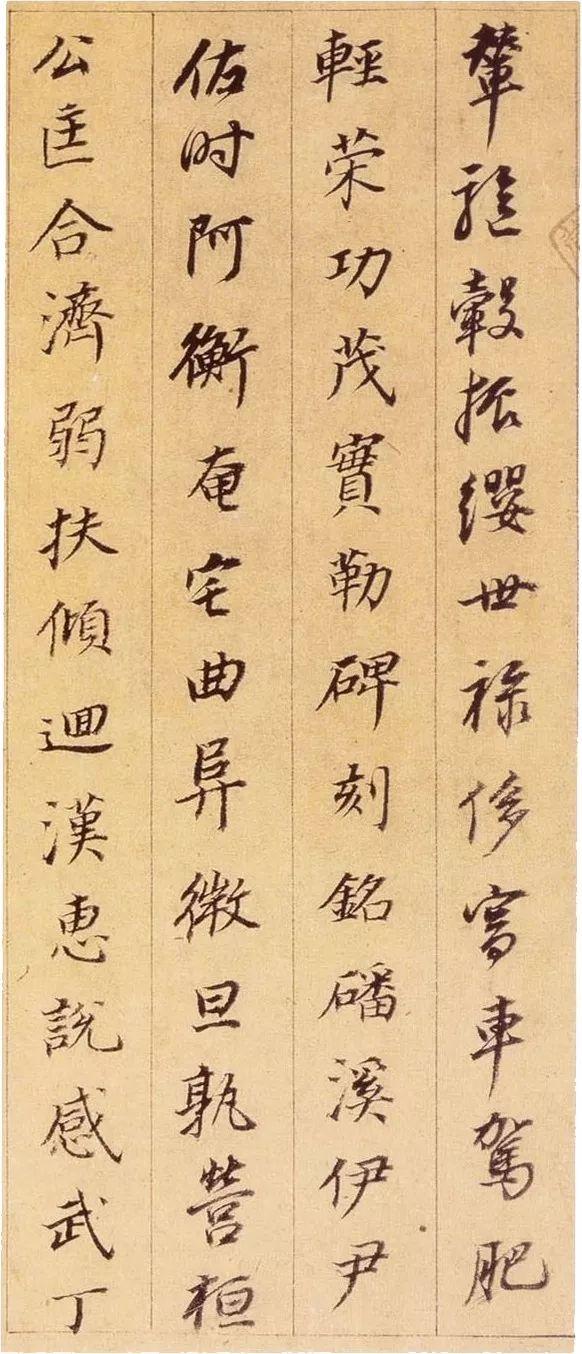 輦駈轂振纓世祿侈富車駕肥
輕策功茂實勒碑刻銘磻溪伊尹
佐時阿衡奄宅曲阜微旦孰營桓
公匡合濟弱扶傾迴漢惠說感武丁